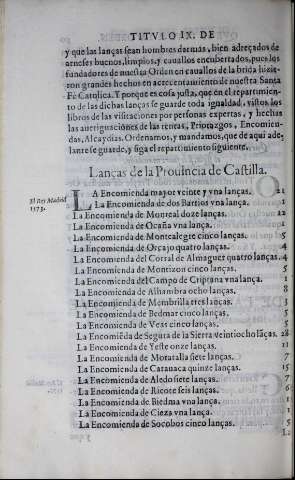 TITVLO IX. DE
y que las lanças sean hombres darmas, bien adreçados de
arneses buenos, limpios, y cauallos encubertados, pues los
fundadores de nuestra Orden en cauallos de la brida hizie-
ron grandes hechos en acrecentamiento de nuestra Santa
Fè Catolica. Y porque es cosa justa, que en el repartimien-
to de las dichas lanças se guarde toda igualdad, vistos los
libros de las visitaciones por personas expertas, y hechas
las aueriguaciones de las rentas, Priorazgos, Encomien-
das, Alcaydias. Ordenamos, y mandamos, que de aqui ade-
lante se guarde, y siga el repartimiento siguiente.
Lanças de la Prouincia de Castilla.
El Rey Madrid
1573.
LA Encomienda mayor veinte y vna lanças. 21
La Encomienda de dos Barrios vna lança. 1
La Encomienda de Monreal doze lanças. 12
La Encomienda de Ocaña vna lança. 1
La Encomienda de Montealegre cinco lanças. 5
La Encomienda de Orcajo quatro lanças. 4
La Encomienda del Corral de Almaguer quatro lanças. 4
La Encomienda de Montizon cinco lanças. 5
La Encomienda del Campo de Criptana vna lança. 1
La Encomienda de Alhambra ocho lanças. 8
La Encomienda de Membrilla tres lanças. 3
La Encomienda de Bedmar cinco lanças. 5
La Encomienda de Veas cinco lanças. 5
La Encomiẽda de Segura de la Sierra veintiocho lãças. 28
La Encomienda de Yeste onze lanças. 11
La Encomienda de Moratalla siete lanças. 7
La Encomienda de Carauaca quinze lanças. 15
La Encomienda de Aledo siete lanças. 7
La Encomienda de Ricote seis lanças. 6
La Encomienda de Biedma vna lança. 1
La Encomienda de Cieza vna lança. 1
La Encomienda de Socobos cinco lanças. 5
La